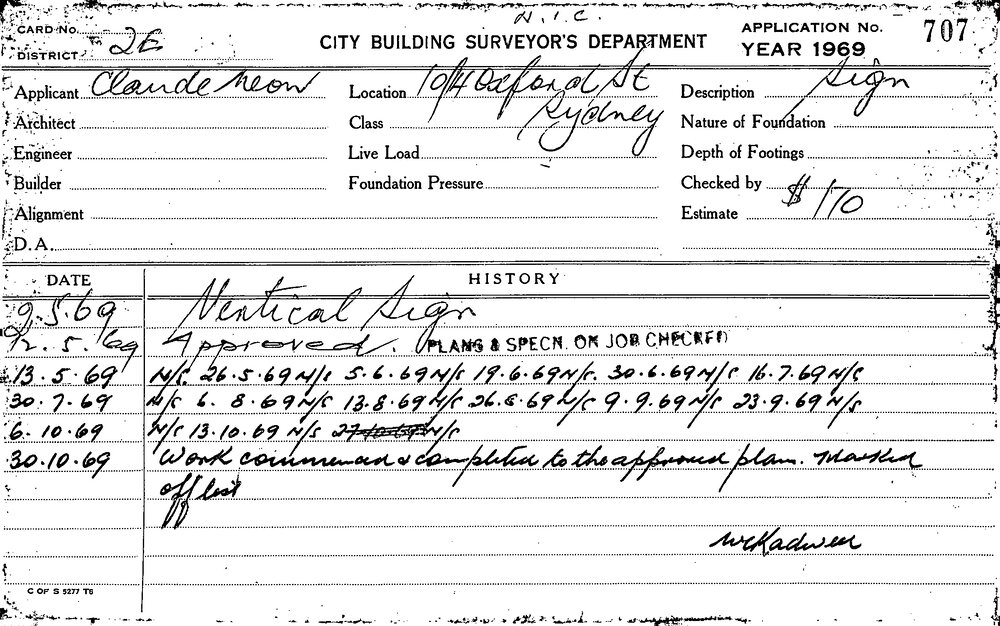 N.I.C.
CARD No.
DISTRICT 2E
CITY BUILDING SURVEYOR'S DEPARTMENT
APPLICATION No. 707
YEAR 1969
Applicant Claude Neon
Location 10/4 Oxford St
Sydney
Description Sign
Architect
Class
Nature of Foundation
Engineer
Live Load
Depth of Footings
Builder
Foundation Pressure
Checked by
Alignment
Estimate $ 110
D.A.
DATE
HISTORY
9.5.69 Vertical Sign
12.5.69 Approved. PLANS & SPECN. ON JOB CHECKED
13.5.69 N/S. 26.5.69 N/S 5.6.69 N/S 19.6.69 N/S. 30.6.69 N/S 16.7.69 N/S
30.7.69 N/S 6.8.69 N/S 13.8.69 N/S 26.8.69 N/S 9.9.69 N/S 23.9.69 N/S
6.10.69 N/S 13.10.69 N/S 27.10.69 N/S
30.10.69 Work commenced & completed to the approved plan. Marked
off list
C OF S 5277 T6